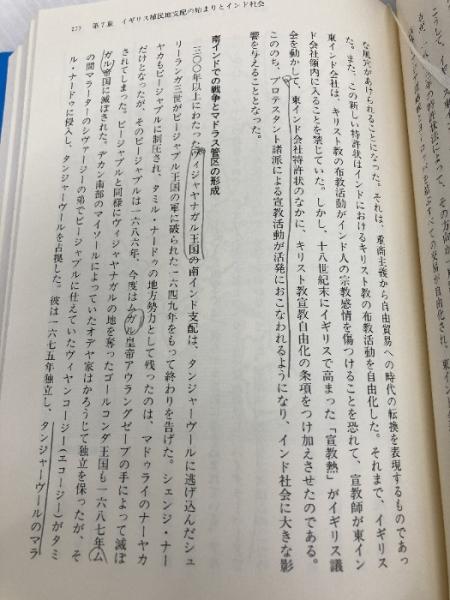 277　第7章　イギリス植民地支配の始まりとインド社会
な風穴があけられることになった。それは、重商主義から自由貿易への時代の転換を表現するものであっ
た。また、この新しい特許状はインドにおけるキリスト教の布教活動を自由化した。それまで、イギリス
東インド会社は、キリスト教の布教活動がインド人の宗教感情を傷つけることを恐れて、宣教師が東イン
ド会社領内に入ることを禁じていた。しかし、十八世紀末にイギリスで高まった「宣教熱」がイギリス議
会を動かして、東インド会社特許状のなかに、キリスト教宣教自由化の条項をつけ加えさせたのである。
こののち、プロテスタント諸派による宣教活動が活発におこなわれるようになり、インド社会に大きな影
響を与えることとなった。
南インドでの戦争とマドラス管区の形成
三〇〇年以上にわたったヴィジャヤナガル王国の南インド支配は、タンジャーヴールに逃げ込んだシュ
リーランガ三世がビージャプル王国の軍に破られた一六四九年をもって終わりを告げた。シェンジ・ナー
ヤカもビージャプルに制圧され、タミル・ナードゥの地方勢力として残ったのは、マドゥライのナーヤカ
だけとなったが、そのビージャプルは一六八六年、今度はムガル皇帝アウラングゼーブの手によって滅ぼ
されてしまった。ビージャプルと同様にヴィジャヤナガルの地を奪ったゴールコンダ王国も一六八七年ム
ガル帝国に滅ぼされた。デカン南部のマイソールによっていたオデヤ家はかろうじて独立を保ったが、そ
の間マラーターのシヴァージーの弟でビージャプルに仕えていたヴィヤンコージー（エコージー）がタミ
ル・ナードゥに侵入し、タンジャーヴールを占拠した。彼は一六七五年独立し、タンジャーヴールのマラ